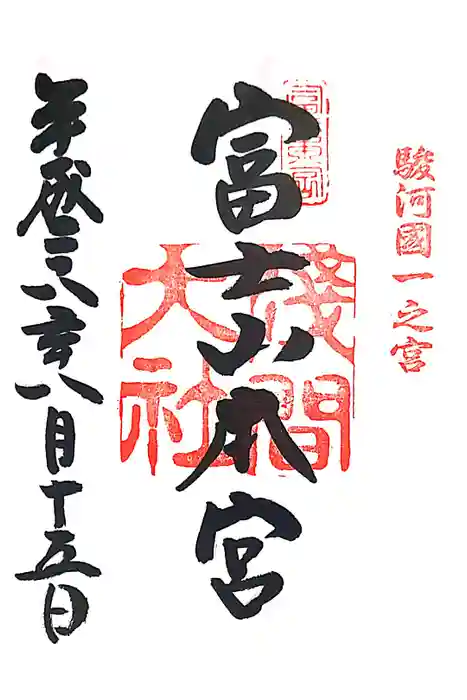 駿河國一之宮
富士山本宮
淺間
大社
平成二八年八月十五日